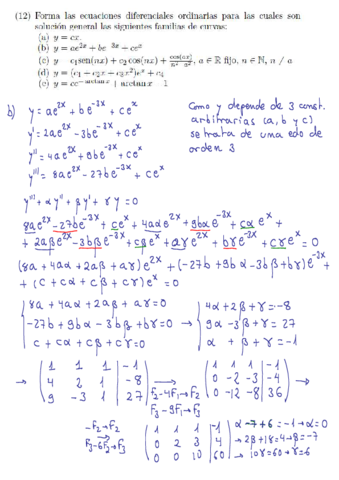 (12) Forma las ecuaciones diferenciales ordinarias para las cuales son
solución general las siguientes familias de curvas:
(a) y = cx.
(b) y = ae^{2x} + be^{-3x} + ce^x
(c) y = c₁sen(nx) + c₂cos(nx) + cos(ax)/(n²-a²), a ∈ ℝ fijo, n ∈ ℕ, n ≠ a
(d) y = (c₁ + c₂x + c₃x²)e^x + c₄
(e) y = ce^{-arctan x} + arctan x - 1
b) y = ae^{2x} + be^{-3x} + ce^x
y' = 2ae^{2x} - 3be^{-3x} + ce^x
y'' = 4ae^{2x} + 9be^{-3x} + ce^x
y''' = 8ae^{2x} - 27be^{-3x} + ce^x
Como y depende de 3 const.
arbitrarias (a, b y c)
se trata de una edo de
orden 3
y''' + αy'' + βy' + γy = 0
8ae^{2x} - 27be^{-3x} + ce^x + 4αae^{2x} + 9bαe^{-3x} + cαe^x +
+ 2aβe^{2x} - 3bβe^{-3x} + cβe^x + aγe^{2x} + bγe^{-3x} + cγe^x = 0
(8a + 4aα + 2aβ + aγ)e^{2x} + (-27b + 9bα - 3bβ + bγ)e^{-3x} +
+ (c + cα + cβ + cγ)e^x = 0
{ 8a + 4aα + 2aβ + aγ = 0
-27b + 9bα - 3bβ + bγ = 0
c + cα + cβ + cγ = 0
→ { 4α + 2β + γ = -8
9α - 3β + γ = 27
α + β + γ = -1
→ ( 1 1 1 | -1
4 2 1 | -8
9 -3 1 | 27 )
F₂-4F₁→F₂
F₃-9F₁→F₃
( 1 1 1 | -1
0 -2 -3 | -4
0 -12 -8 | 36 ) →
-F₂→F₂
F₃-6F₂→F₃
( 1 1 1 | -1
0 2 3 | 4
0 0 10 | 60 )
α - 7 + 6 = -1 → α = 0
→ 2β + 18 = 4 → β = -7
→ 10γ = 60 → γ = 6